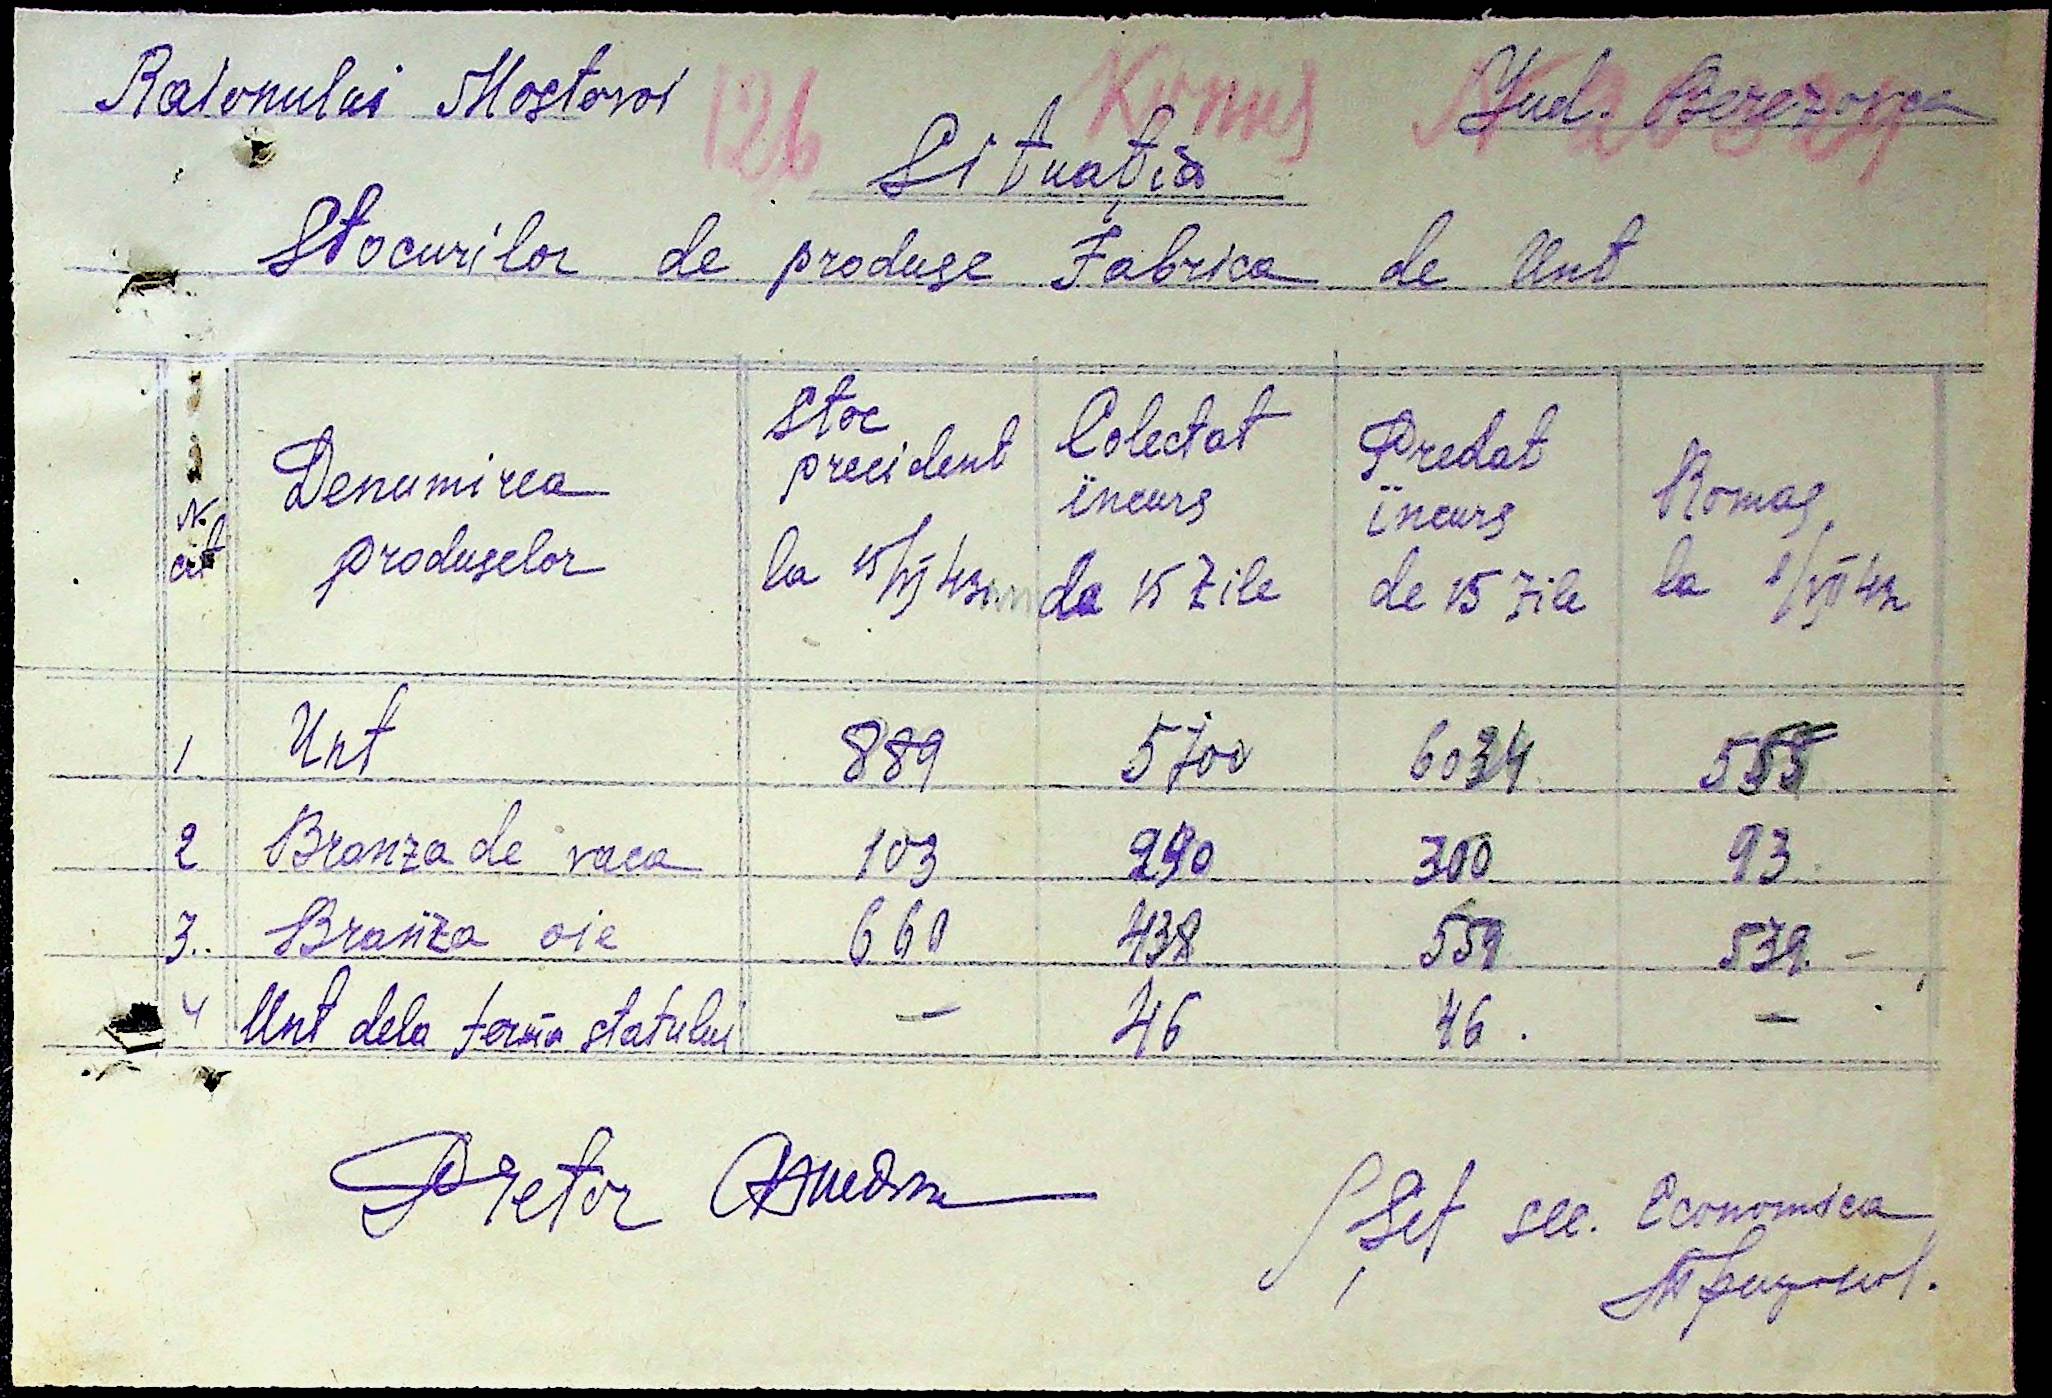 Raionului Mostovoi 126 Jud. Berezovca
Situația
Stocurilor de produse Fabrica de Unt
N. crt Denumirea produselor Stoc precident la 15/VI 43 Colectat incurs de 15 Zile Predat incurs de 15 Zile Romas la 1/VII 43
1 Unt 889 5700 6034 555
2 Branza de vaca 103 290 300 93
3. Branza oie 660 438 559 539. -
4 Unt dela ferma statului - 46 46. -
Pretor
Șef sec. Economica